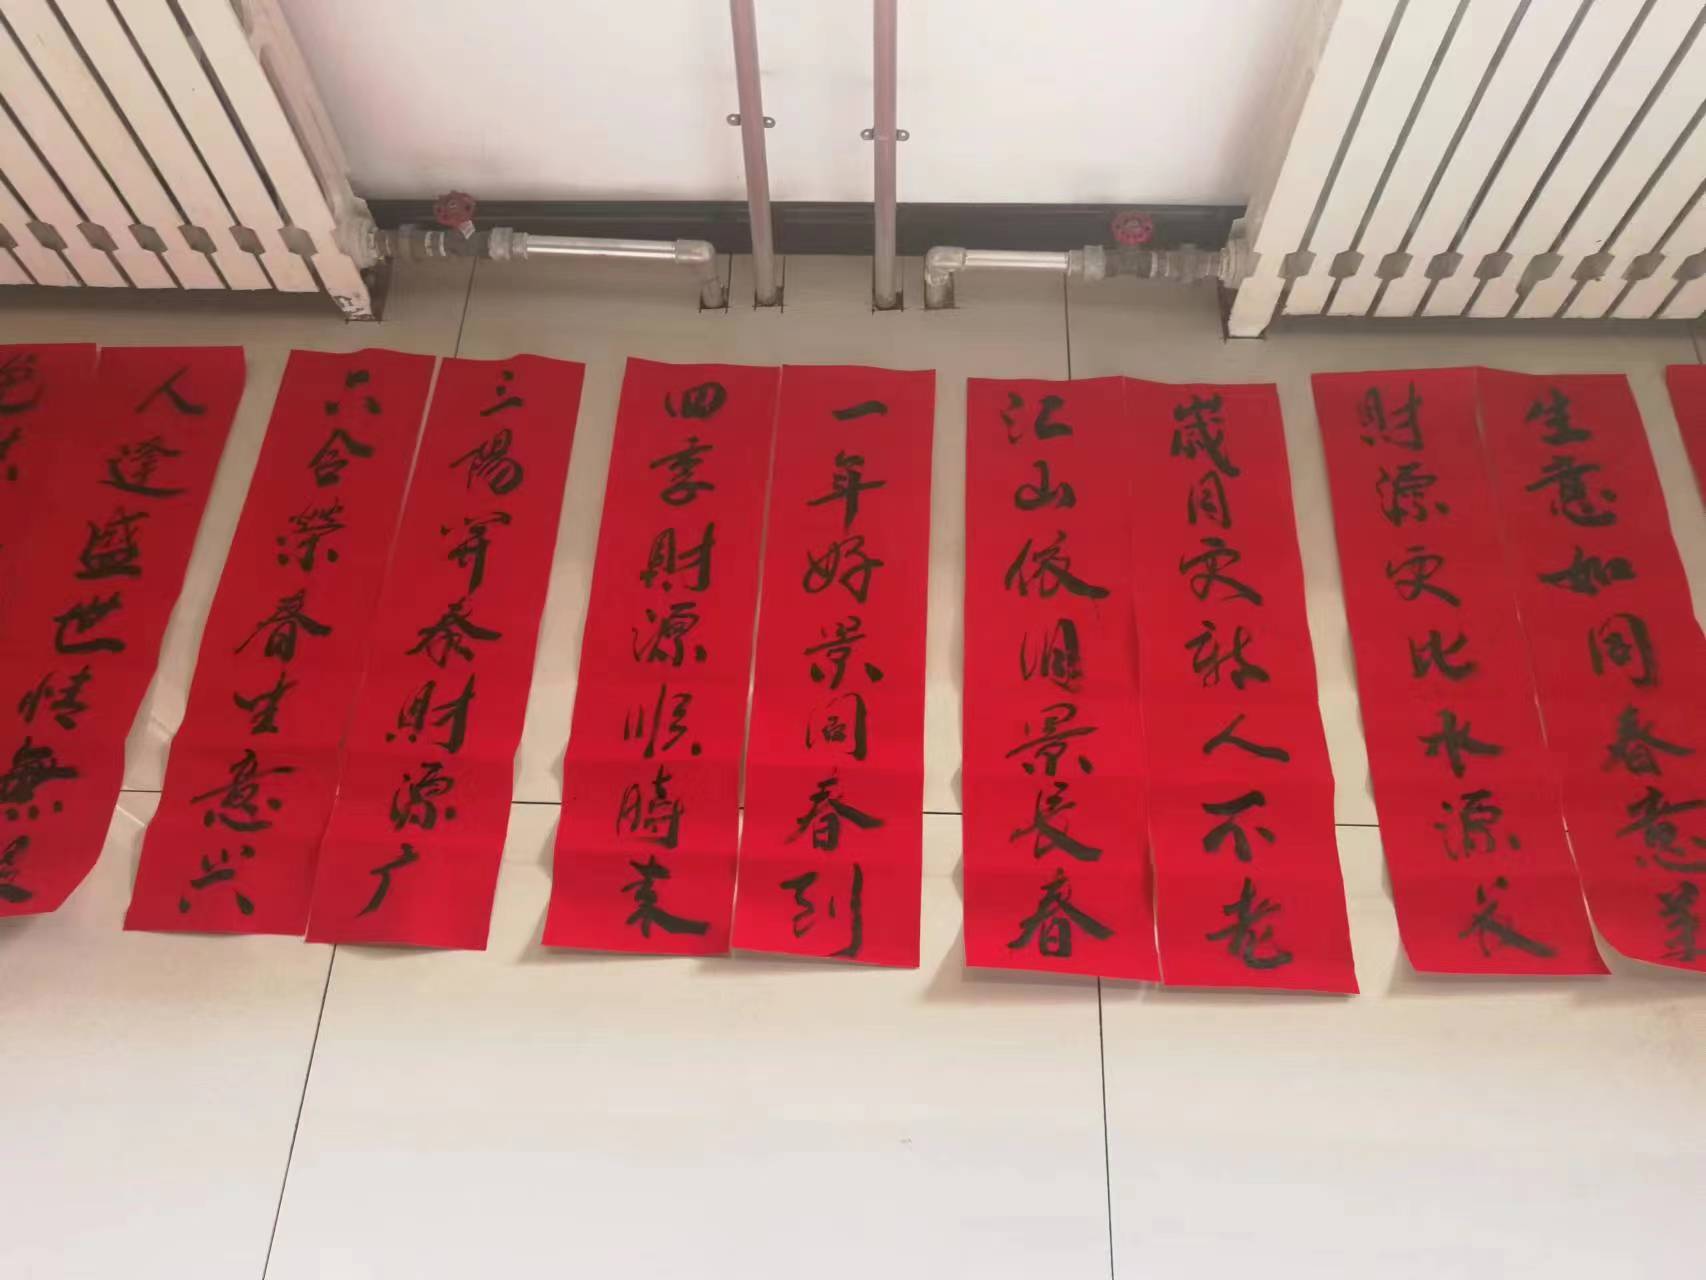 生意如同春意美
財源更比水源长
歲月更新人不老
江山依旧景長春
一年好景同春到
四季財源順時來
三陽開泰財源广
六合榮春生意兴
人逢盛世情無